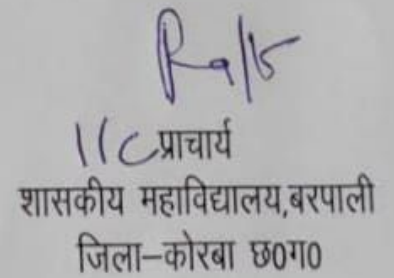 I/C प्राचार्य
शासकीय महाविद्यालय,बरपाली
जिला–कोरबा छ0ग0